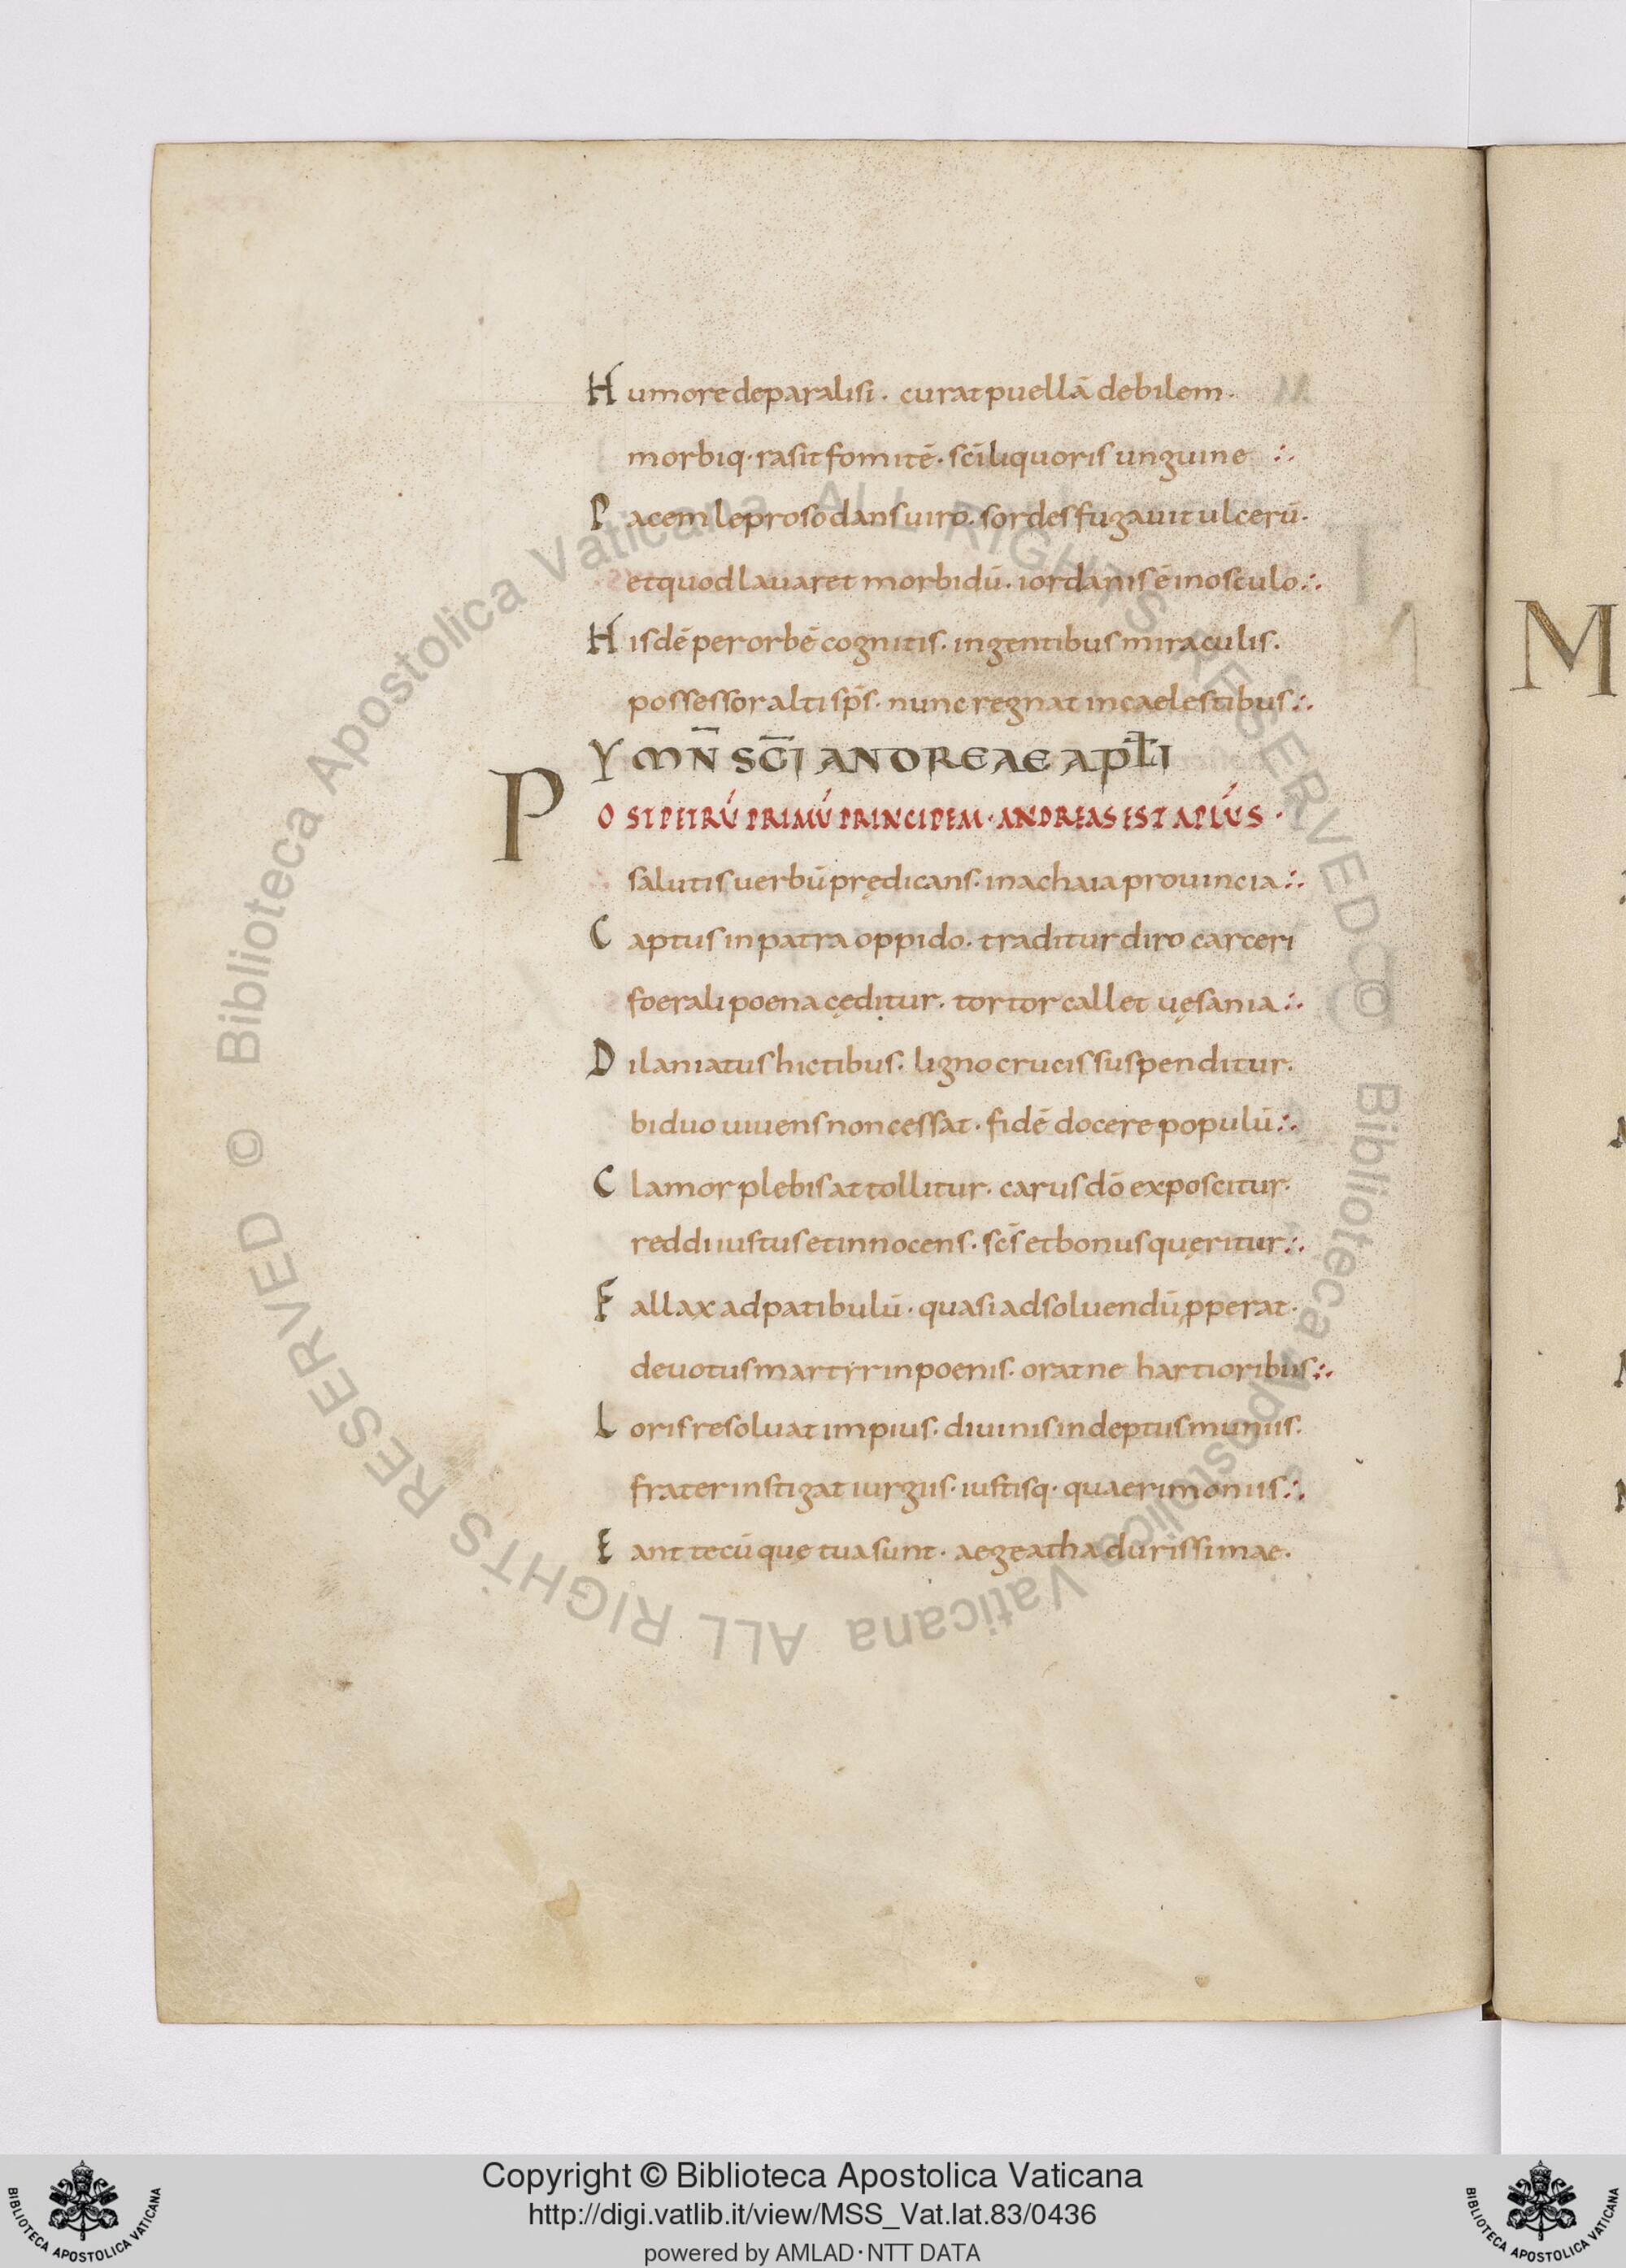 Humore de paralisi · curat puellā debilem ·
morbiq· rasit fomitē · sc̄i liquoris unguine ∴
Pacem leproso dans uiro · sordes fugauit ulcerū ·
et quod lauaret morbidū · iordanis ē in osculo ∴
His dē per orbē cognitis · ingentibus miraculis ·
possessor alti sp̄s · nunc regnat in caelestibus ∴
YMN̄ SC̄I ANDREAE APL̄I
POST PETRŪ PRIMŪ PRINCIPEM · ANDREAS EST APLŪS ·
salutis uerbū prędicans · in achaia prouincia ∴
Captus in patra oppido · traditur diro carceri
foerali poena cęditur · tortor callet uęsania ∴
Dilaniatus hictibus · ligno crucis suspenditur ·
biduo uiuens non cessat · fidē docere populū ∴
Clamor plebis attollitur · carus dō exposcitur ·
reddi iustus et innocens · sc̄s et bonus quęritur ∴
Fallax ad patibulū · quasi ad soluendū ꝓperat ·
deuotus martyr in poenis · orat ne hartioribus ∴
Loris resoluat impius · diuinis indeptus muniis ·
frater instigat iurgiis · iustisq· quaerimoniis ∴
Eant tecū quę tua sunt · aegeatha durissimae ·
M
© Biblioteca Apostolica Vaticana ALL RIGHTS RESERVED © Biblioteca Apostolica Vaticana ALL RIGHTS RESERVED
Copyright © Biblioteca Apostolica Vaticana
http://digi.vatlib.it/view/MSS_Vat.lat.83/0436
powered by AMLAD·NTT DATA
BIBLIOTECA APOSTOLICA VATICANA
BIBLIOTECA APOSTOLICA VATICANA